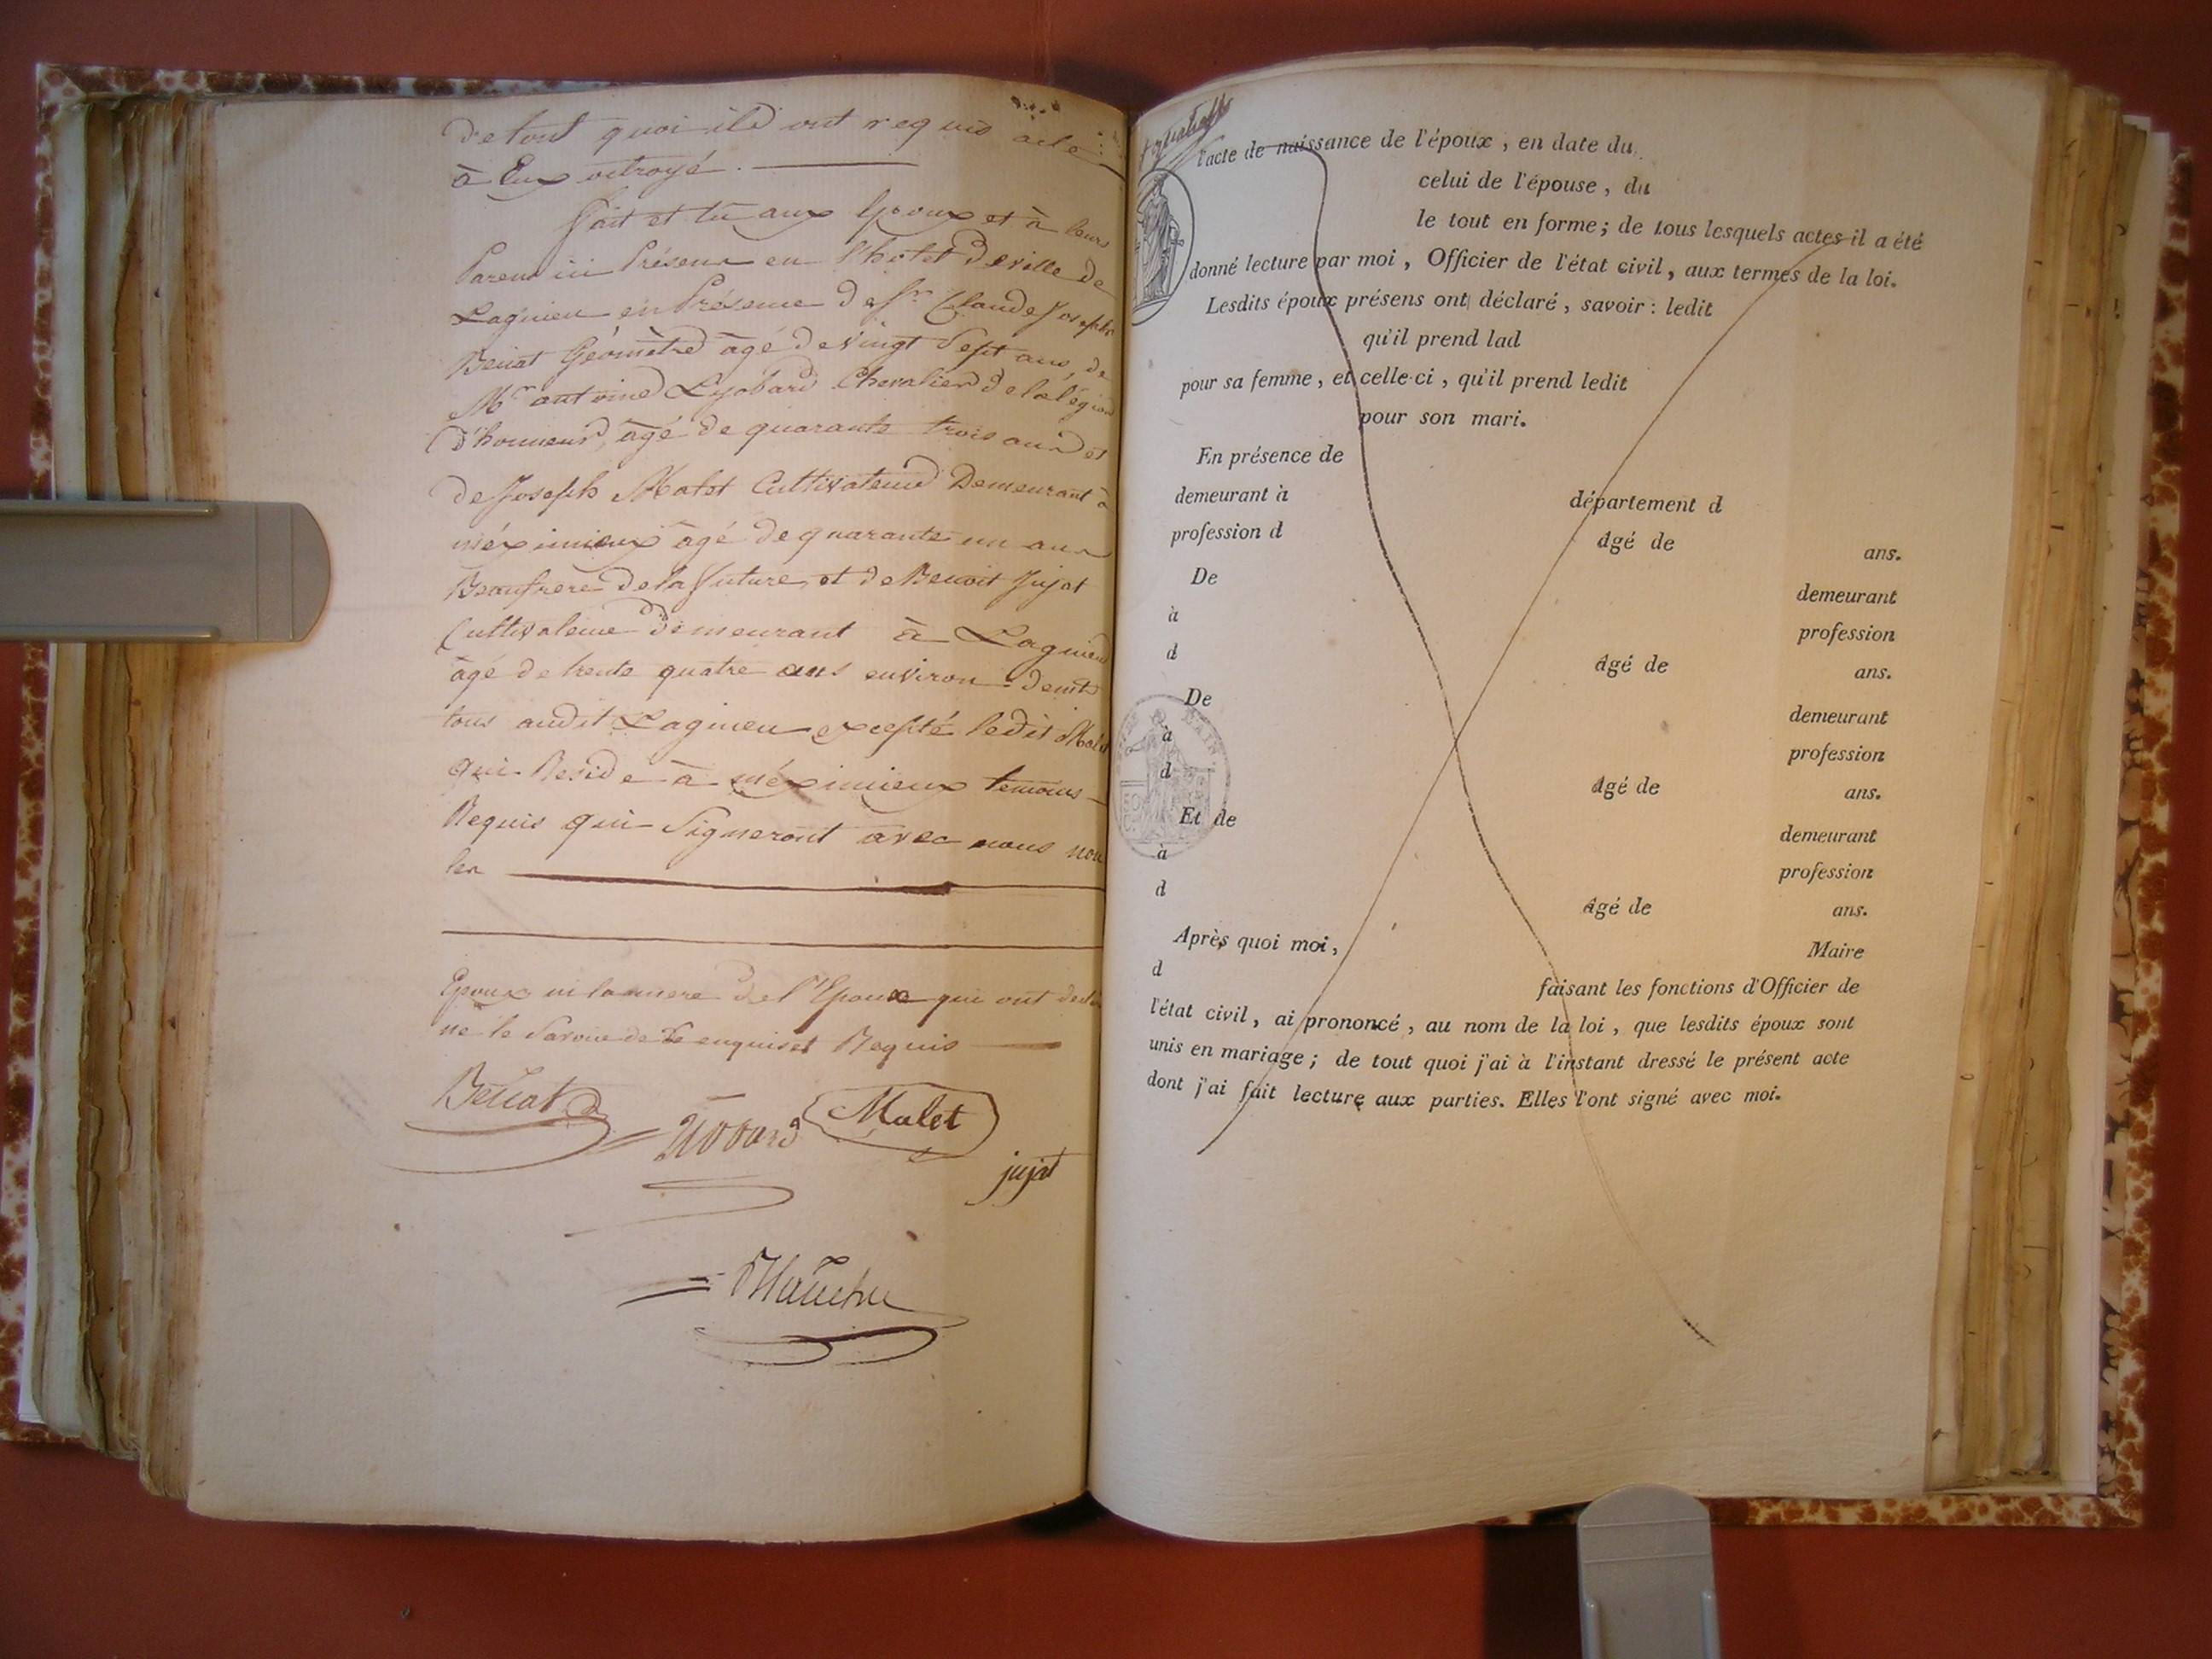 de tout quoi ils ont requis acte
à Eux octroyé.
fait et lu aux Epoux et à leurs
Parens ici Présens en l'hotel de ville de
Lagnieu en Présence de Sr Claude Joseph
Benat Géomètre âgé de vingt sept ans, de
Mr antoine Lyobard Chevalier de la légion
d'honneur, âgé de quarante trois ans et
de Joseph Malet Cultivateur Demeurant à
méximieux âgé de quarante un ans
Beaufrere de la future, et de Benoit Jujat
Cultivateur demeurant à Lagnieu
âgé de trente quatre ans environ demts
tous audit Lagnieu excepté ledit Malet
qui Reside à méximieux temoins
Requis qui Signeront avec nous non
les
Epoux ni la mere de l'Epoux qui ont declaré
ne le Savoir de ce enquis et Requis
Benat
Malet
jujat
l'acte de naissance de l'époux, en date du
celui de l'épouse, du
le tout en forme; de tous lesquels actes il a été
donné lecture par moi, Officier de l'état civil, aux termes de la loi.
Lesdits époux présens ont déclaré, savoir : ledit
qu'il prend lad
pour sa femme, et celle-ci, qu'il prend ledit
pour son mari.
En présence de
demeurant à département d
profession d âgé de ans.
De demeurant
à profession
d âgé de ans.
De demeurant
à profession
d âgé de ans.
Et de demeurant
à profession
d âgé de ans.
Après quoi moi, Maire
d faisant les fonctions d'Officier de
l'état civil, ai prononcé, au nom de la loi, que lesdits époux sont
unis en mariage; de tout quoi j'ai à l'instant dressé le présent acte
dont j'ai fait lecture aux parties. Elles l'ont signé avec moi.